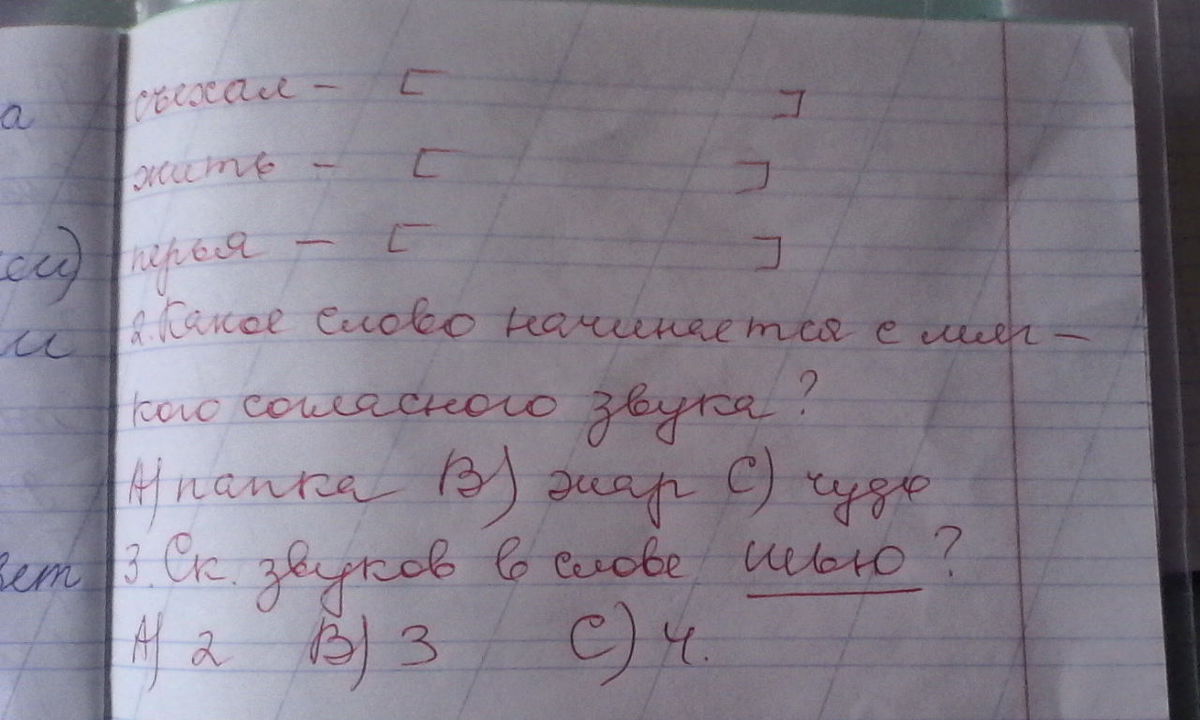 а
си)
и
вет
съехал – [ ]
жить – [ ]
перья – [ ]
2. Какое слово начинается с мяг –
кого согласного звука?
А) папка В) жар С) чудо
3. Ск. звуков в слове шью?
А) 2 В) 3 С) 4.